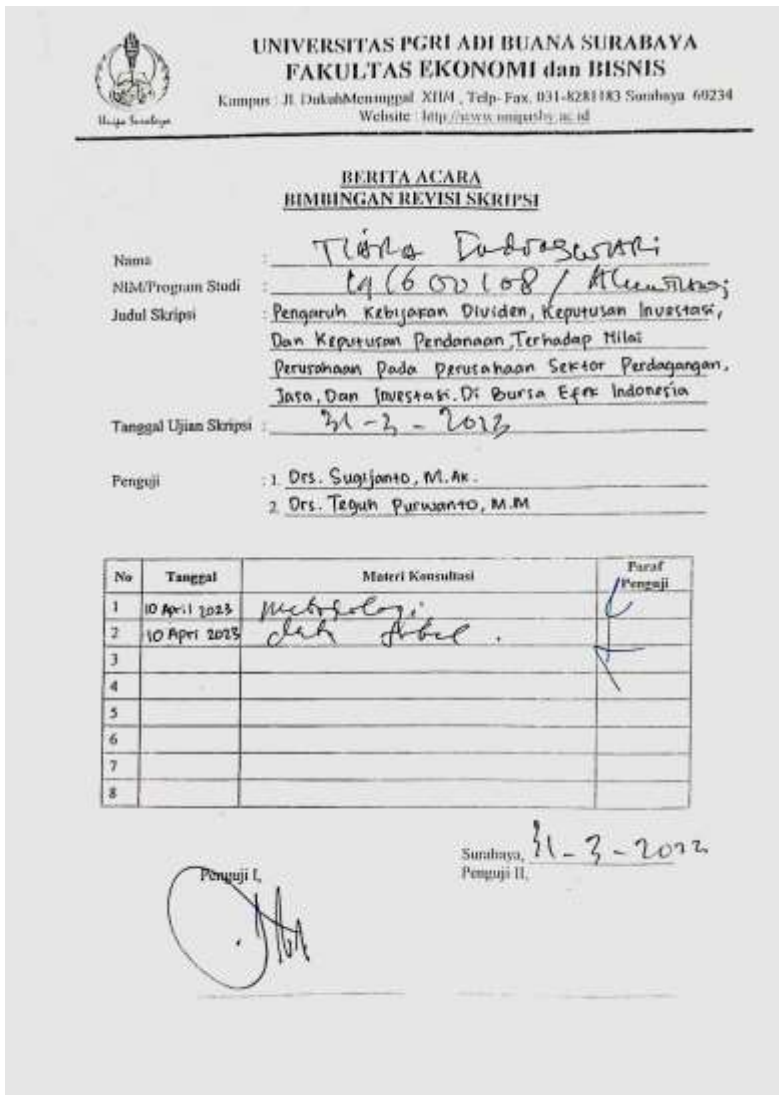 UNIVERSITAS PGRI ADI BUANA SURABAYA
FAKULTAS EKONOMI dan BISNIS
Kampus : Jl. DukuhMenanggal XII/4 , Telp- Fax. 031-8281183 Surabaya 60234
Website : http://www.unipasby.ac.id
Unipa Surabaya
BERITA ACARA
BIMBINGAN REVISI SKRIPSI
Nama :
NIM/Program Studi : / Akuntansi
Judul Skripsi : Pengaruh Kebijakan Dividen, Keputusan Investasi,
Dan Keputusan Pendanaan, Terhadap Nilai
Perusahaan Pada Perusahaan Sektor Perdagangan,
Jasa, Dan Investasi. Di Bursa Efek Indonesia
Tanggal Ujian Skripsi : 31-3-2023
Penguji : 1. Drs. Sugijanto, M.Ak.
2. Drs. Teguh Purwanto, M.M
No Tanggal Materi Konsultasi Paraf Penguji
1 10 April 2023 Metodologi
2 10 Apri 2023
3
4
5
6
7
8
Surabaya, 31-3-2023
Penguji I, Penguji II,